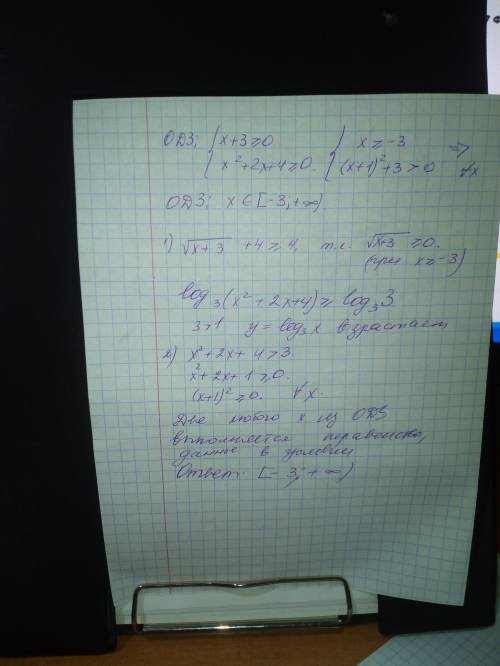 ОДЗ: { x+3≥0 { x≥-3
{ x²+2x+4≥0. { (x+1)²+3>0 ⇒ ∀x
ОДЗ: x∈[-3;+∞).
1) √x+3 +4≥4, т.к. √x+3 ≥0.
(при x≥-3)
log₃(x²+2x+4)≥log₃3
3>1 y=log₃x возрастает
2) x²+2x+4≥3.
x²+2x+1≥0.
(x+1)²≥0. ∀x.
Для любого x из ОДЗ
выполняется неравенство,
данное в условии
Ответ: [-3;+∞)